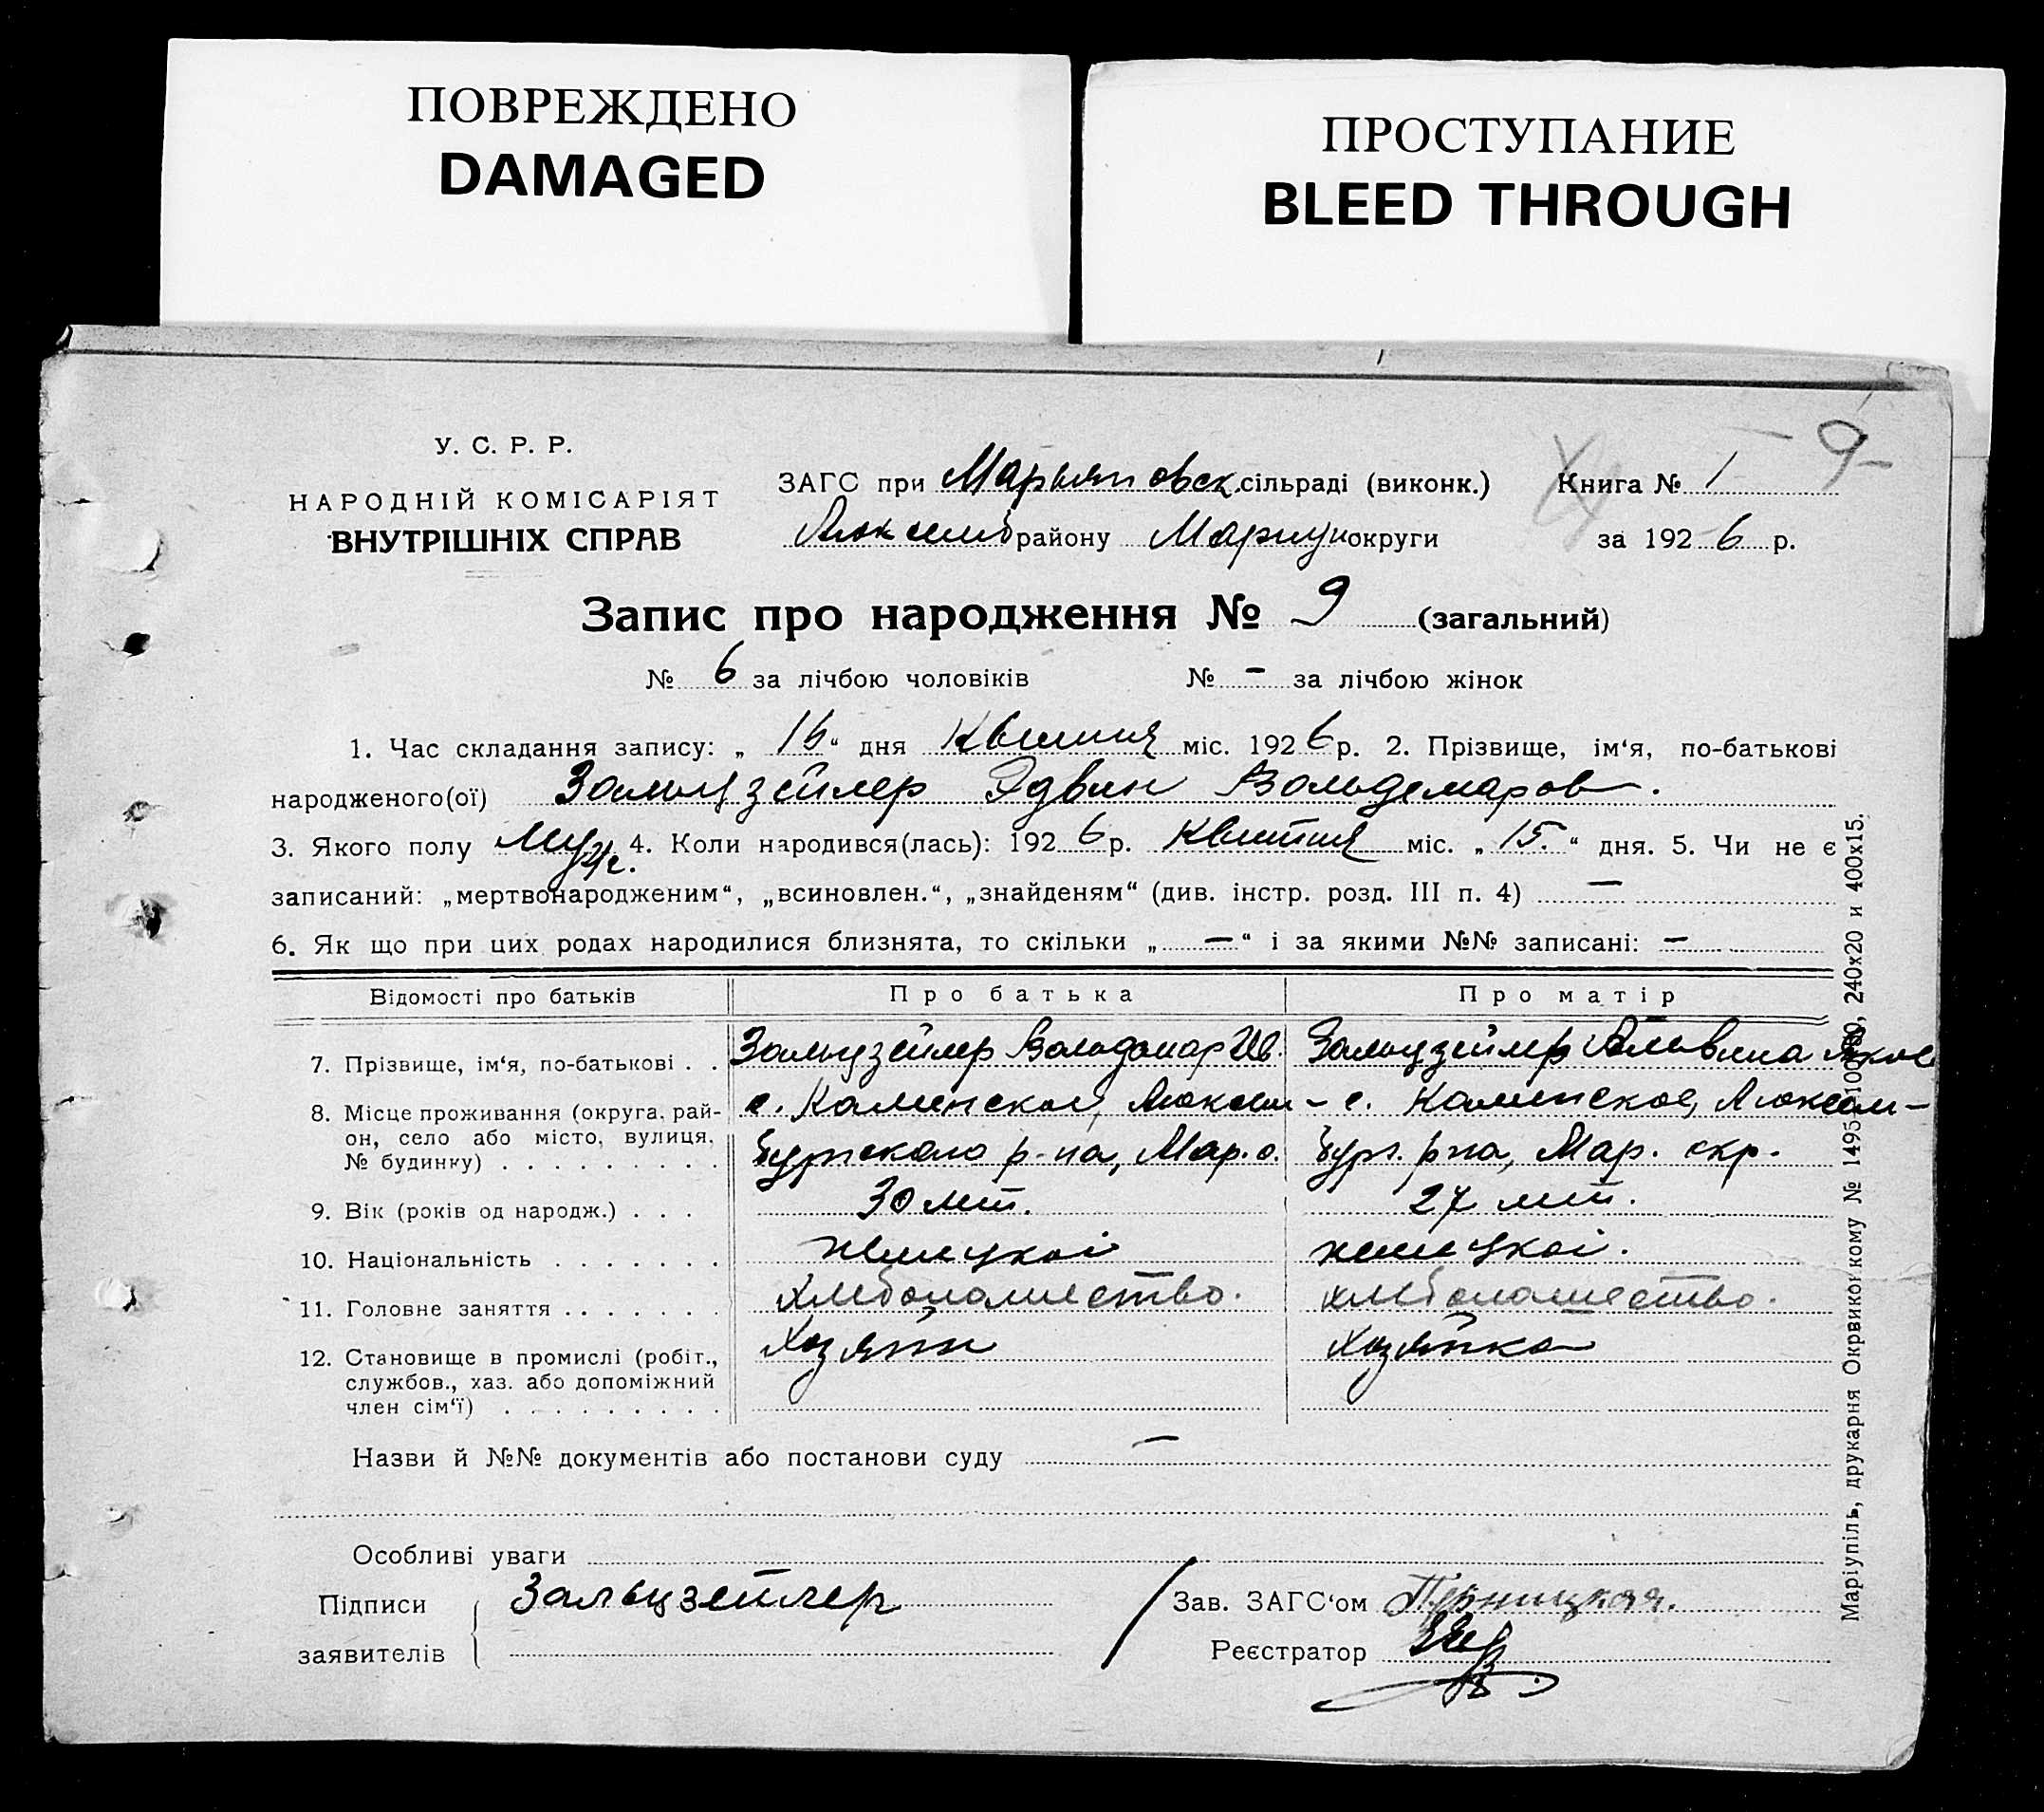 ПОВРЕЖДЕНО
DAMAGED
ПРОСТУПАНИЕ
BLEED THROUGH
9-
У. С. Р. Р.
НАРОДНІЙ КОМІСАРІЯТ
ВНУТРІШНІХ СПРАВ
ЗАГС при Марьяновск. сільраді (виконк.) Книга № 1
Люксемб району Мариуп округи за 1926 р.
Запис про народження № 9 (загальний)
№ 6 за лічбою чоловіків № - за лічбою жінок
1. Час складання запису: „ 16 “ дня Квитня міс. 1926 р. 2. Прізвище, ім‘я, по-батькові
народженого(ої) Зальцзейлер Эдвин Вольдемаров.
3. Якого полу муж. 4. Коли народився(лась): 1926 р. Квитня міс. „ 15. “ дня. 5. Чи не є
записаний: „мертвонародженим“, „всиновлен.“, „знайденям“ (див. інстр. розд. III п. 4) —
6. Як що при цих родах народилися близнята, то скільки „ — “ і за якими №№ записані: —
Відомості про батьків Про батька Про матір
7. Прізвище, ім‘я, по-батькові . . Зальцзейлер Вольдемар Ив. Зальцзейлер Альвина Яков
8. Місце проживання (округа, рай-
он, село або місто, вулиця,
№ будинку) . . . . . . . . .
с. Каменское, Люксем-
бургского р-на, Мар. о.
с. Каменское, Люксем-
бург. р-на, Мар. окр.
9. Вік (років од народж.) . . . 30 лет. 27 лет.
10. Національність . . . . . . . немецкої немецкої.
11. Головне заняття . . . . . . . хлебопашество. хлебопашество.
12. Становище в промислі (робіт.,
службов., хаз. або допоміжний
член сім‘ї) . . . . . . . . .
Хозяин
Хозяйка
Назви й №№ документів або постанови суду —
Особливі уваги
Підписи
заявителів
Зальцзейлер
Зав. ЗАГС‘ом
Реєстратор
Маріупіль, друкарня Окрвиконкому № 1495-10000, 240х20 и 400х15.